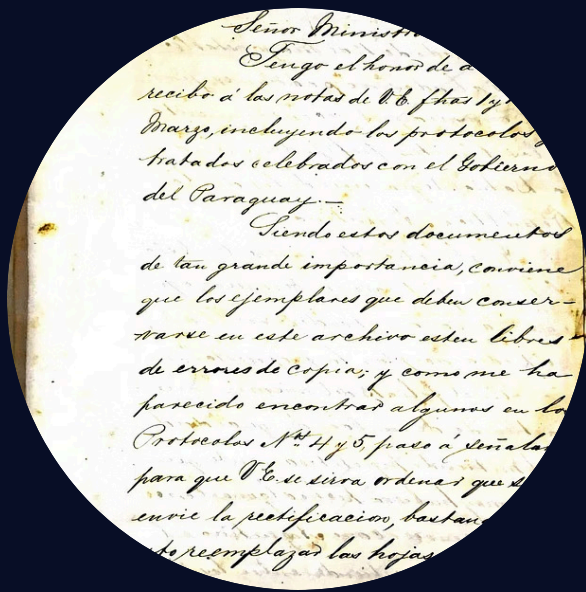 Señor Minist
Tengo el honor de a
recibo á las notas de V.E. fhas 1 y
Marzo, incluyendo los protocolos y
tratados celebrados con el Gobierno
del Paraguay.—
Siendo estos documentos
de tan grande importancia, conviene
que los ejemplares que deben conser-
varse en este archivo esten libres
de errores de copia; y como me ha
parecido encontrar algunos en lo
Protocolos Nos 4 y 5, paso á señala
para que V.E. se sirva ordenar que s
envie la rectificacion, bastan
sto reemplazar las hojas